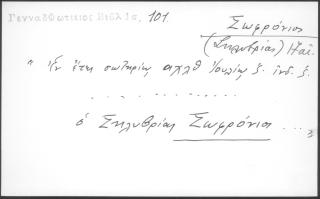 Γενναδ. Φωτιειος Βιβλ. Ια, 101.
Σωφρόνιος
(Σηλυβρίας) Παΐ.
" Ἐν ἔτει σωτηρίῳ αχλθ Ἰουλίῳ ζ. ἰνδ. ζ.
. . . . . . . . . . . . . . .
ὁ Σηλυβρίας Σωφρόνιος ... "